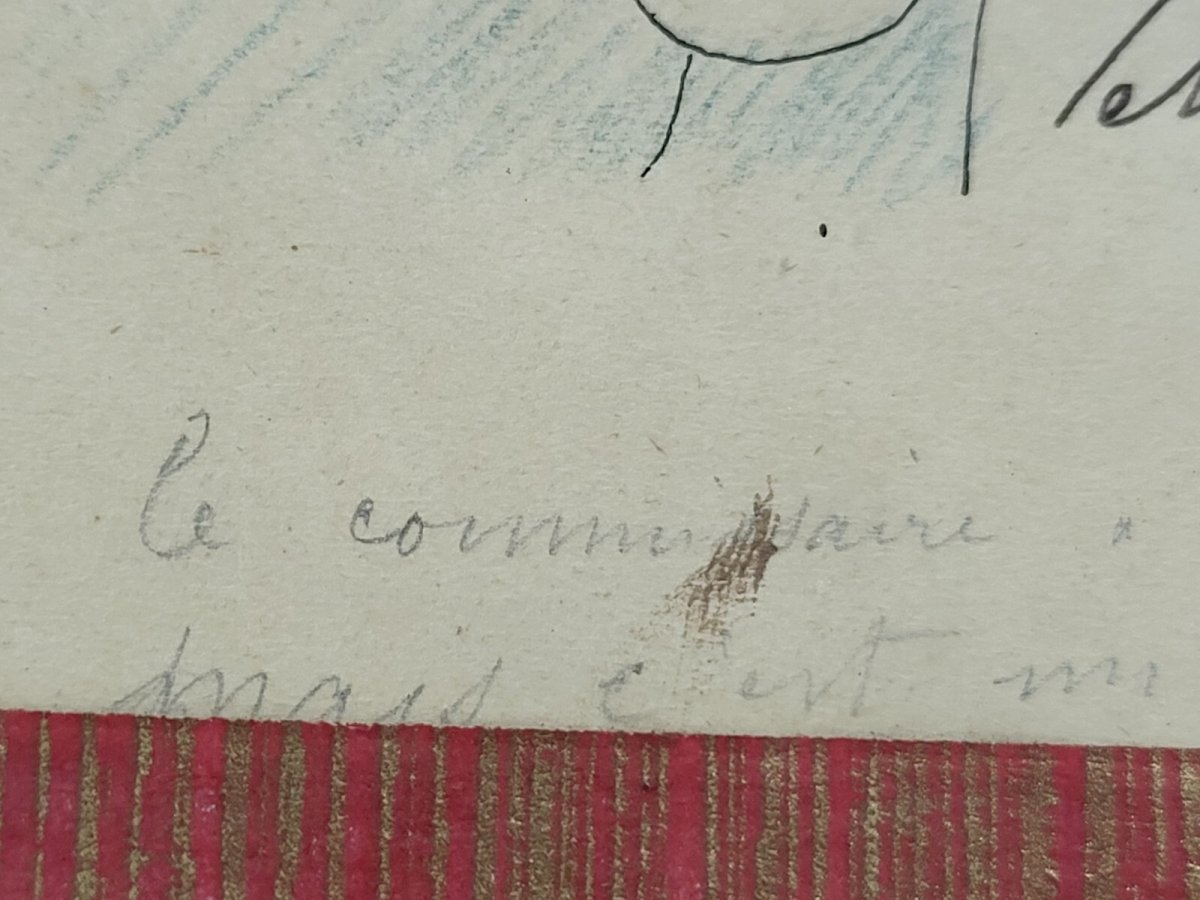 le commissaire "
mais c'est un